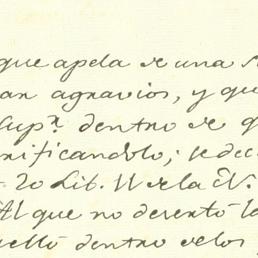 que apela de una
an agravios, y qu
Sup.r dentro de q
nificandolo; se dec
20 Lib. 11 de la N.
Al que no desertó la
dentro de los